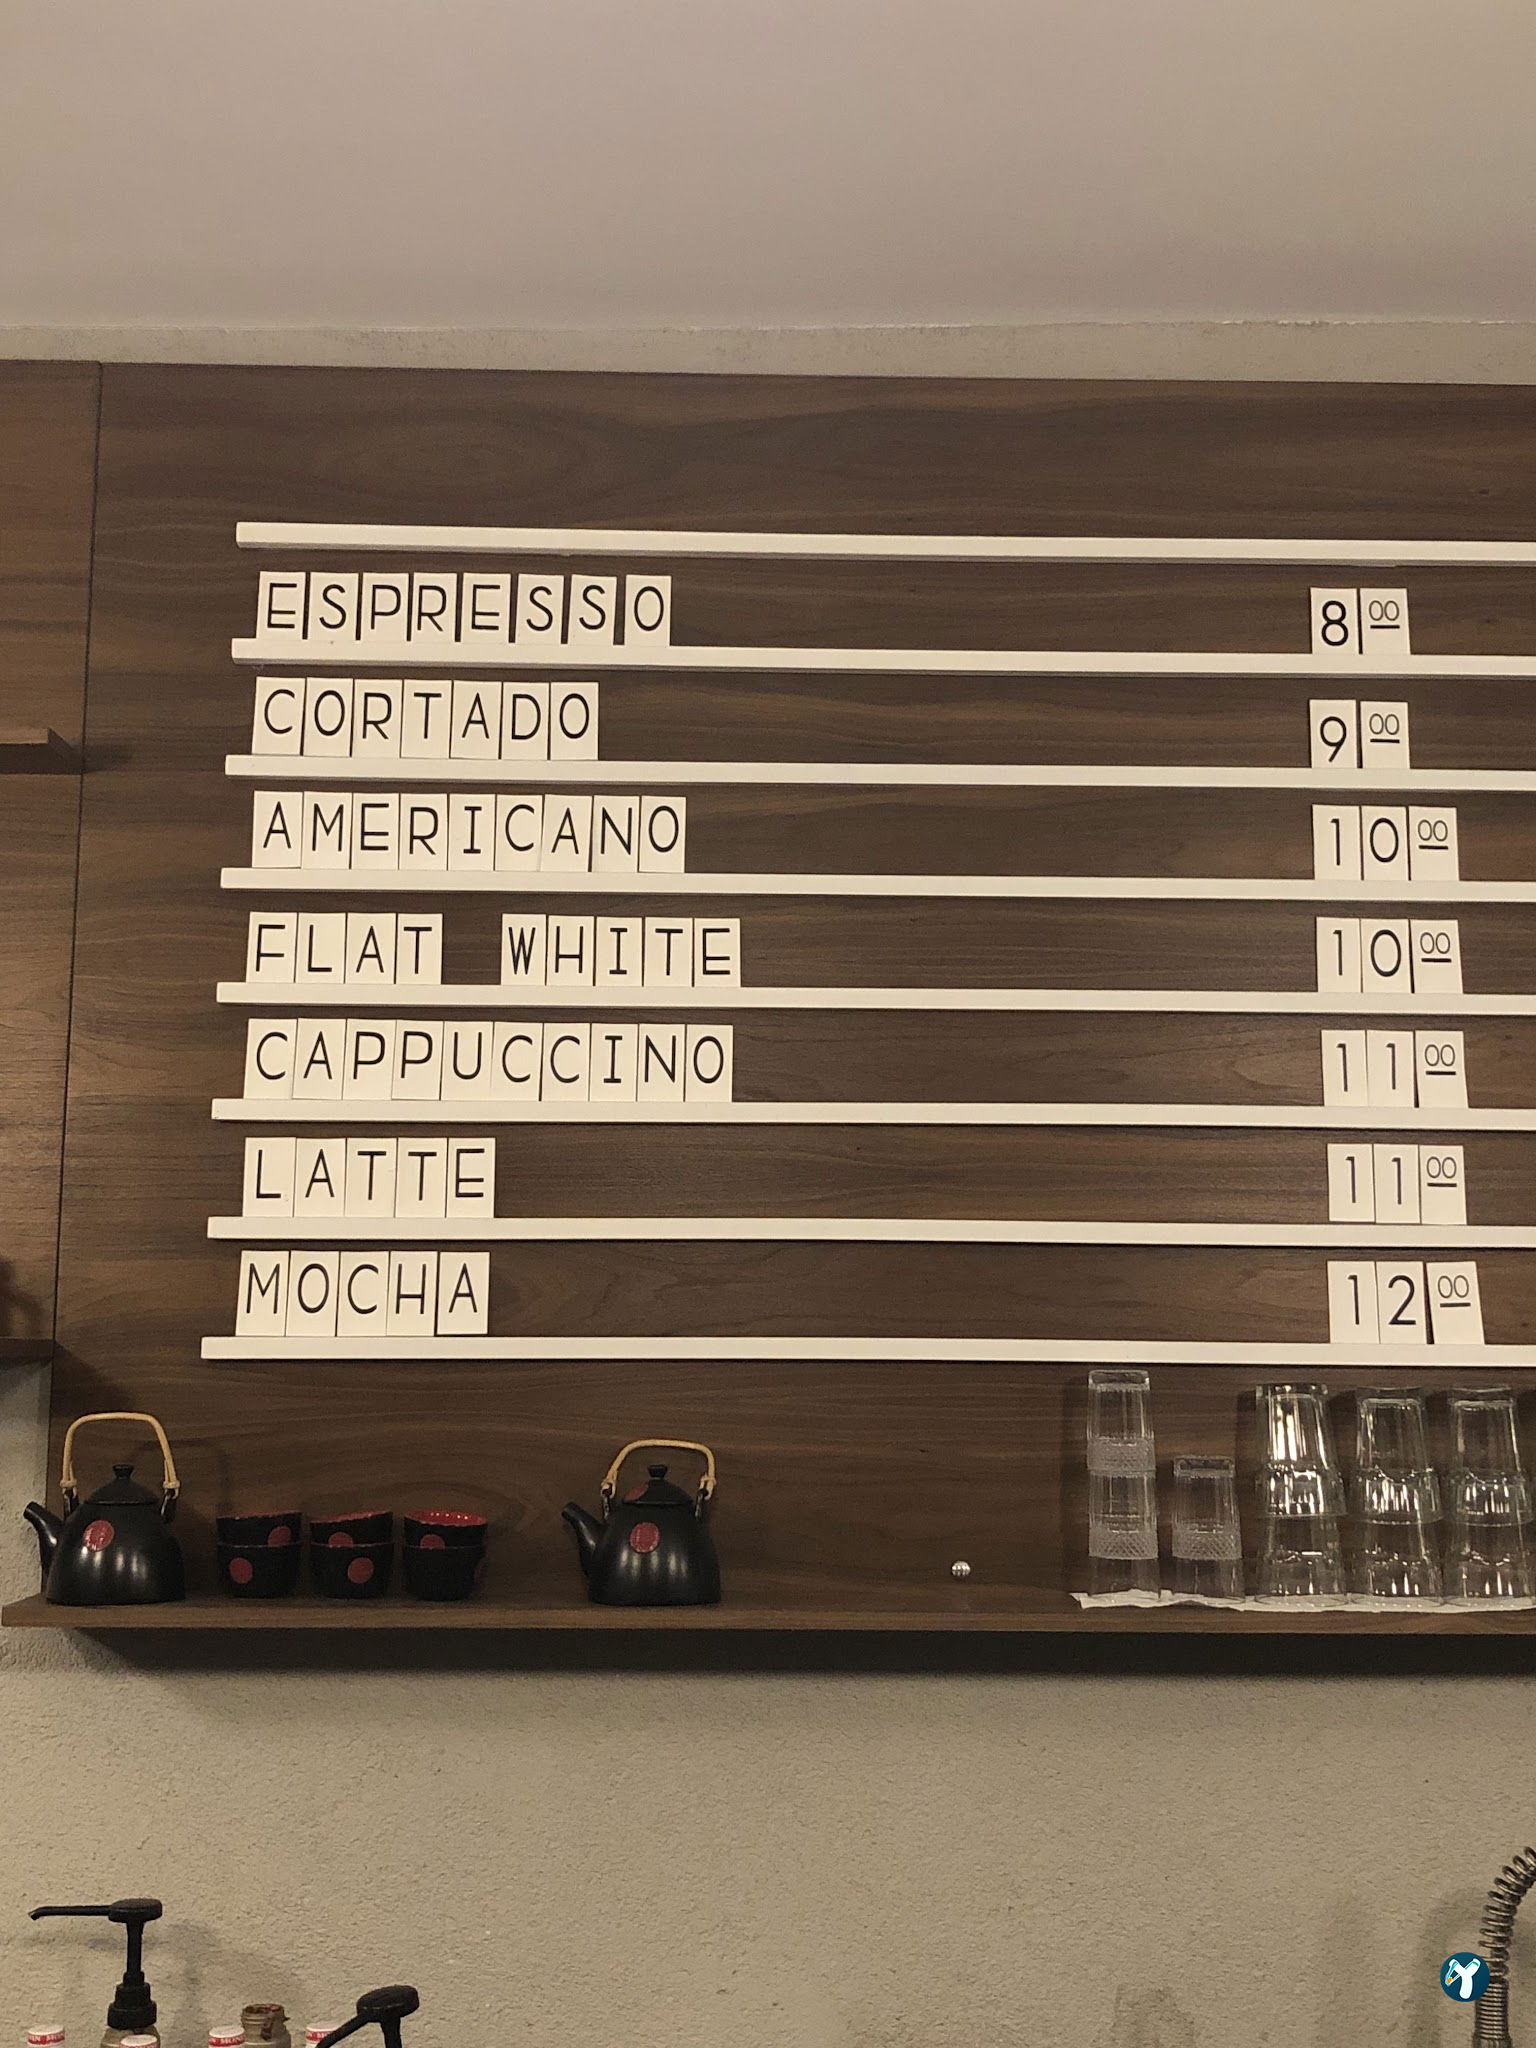 ESPRESSO 8 00
CORTADO 9 00
AMERICANO 10 00
FLAT WHITE 10 00
CAPPUCCINO 11 00
LATTE 11 00
MOCHA 12 00